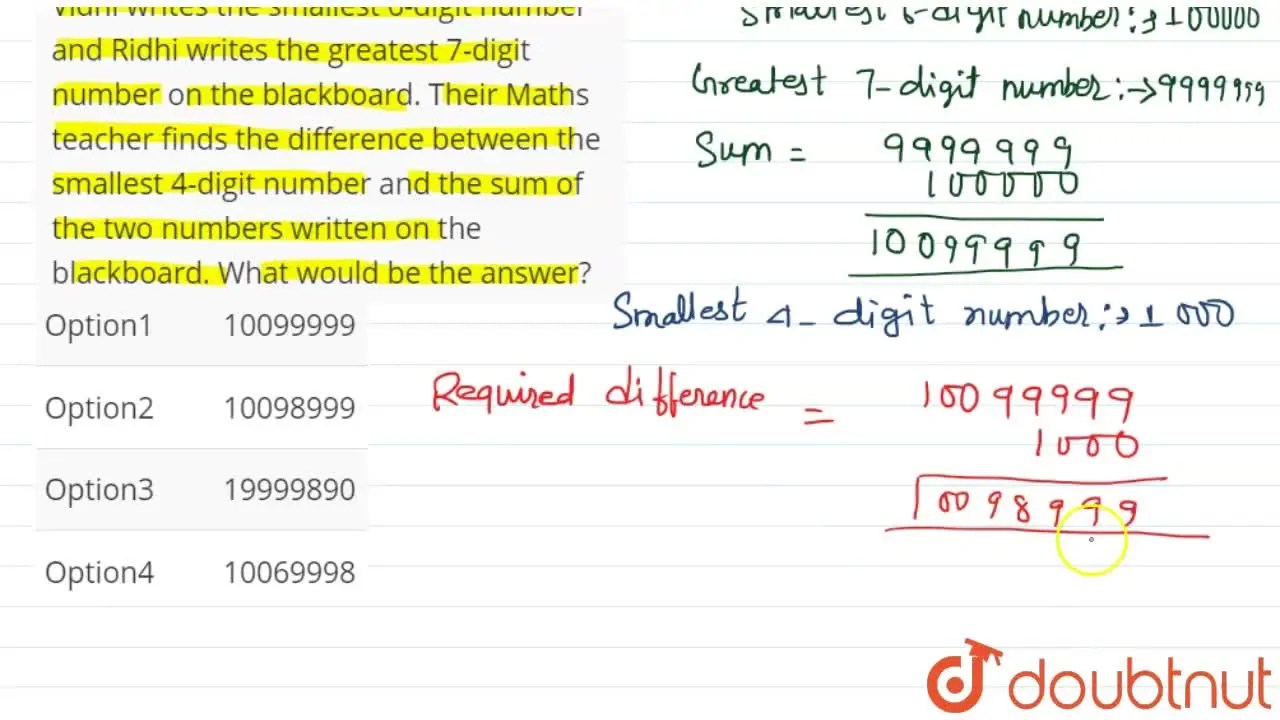 Vidhi writes the smallest 6-digit number
and Ridhi writes the greatest 7-digit
number on the blackboard. Their Maths
teacher finds the difference between the
smallest 4-digit number and the sum of
the two numbers written on the
blackboard. What would be the answer?
Option1 10099999
Option2 10098999
Option3 19999890
Option4 10069998
Smallest 6-digit number:→ 100000
Greatest 7-digit number:→9999999
Sum = 9999999
100000
10099999
Smallest 4-digit number:→ 1000
Required difference = 10099999
1000
10098999
doubtnut